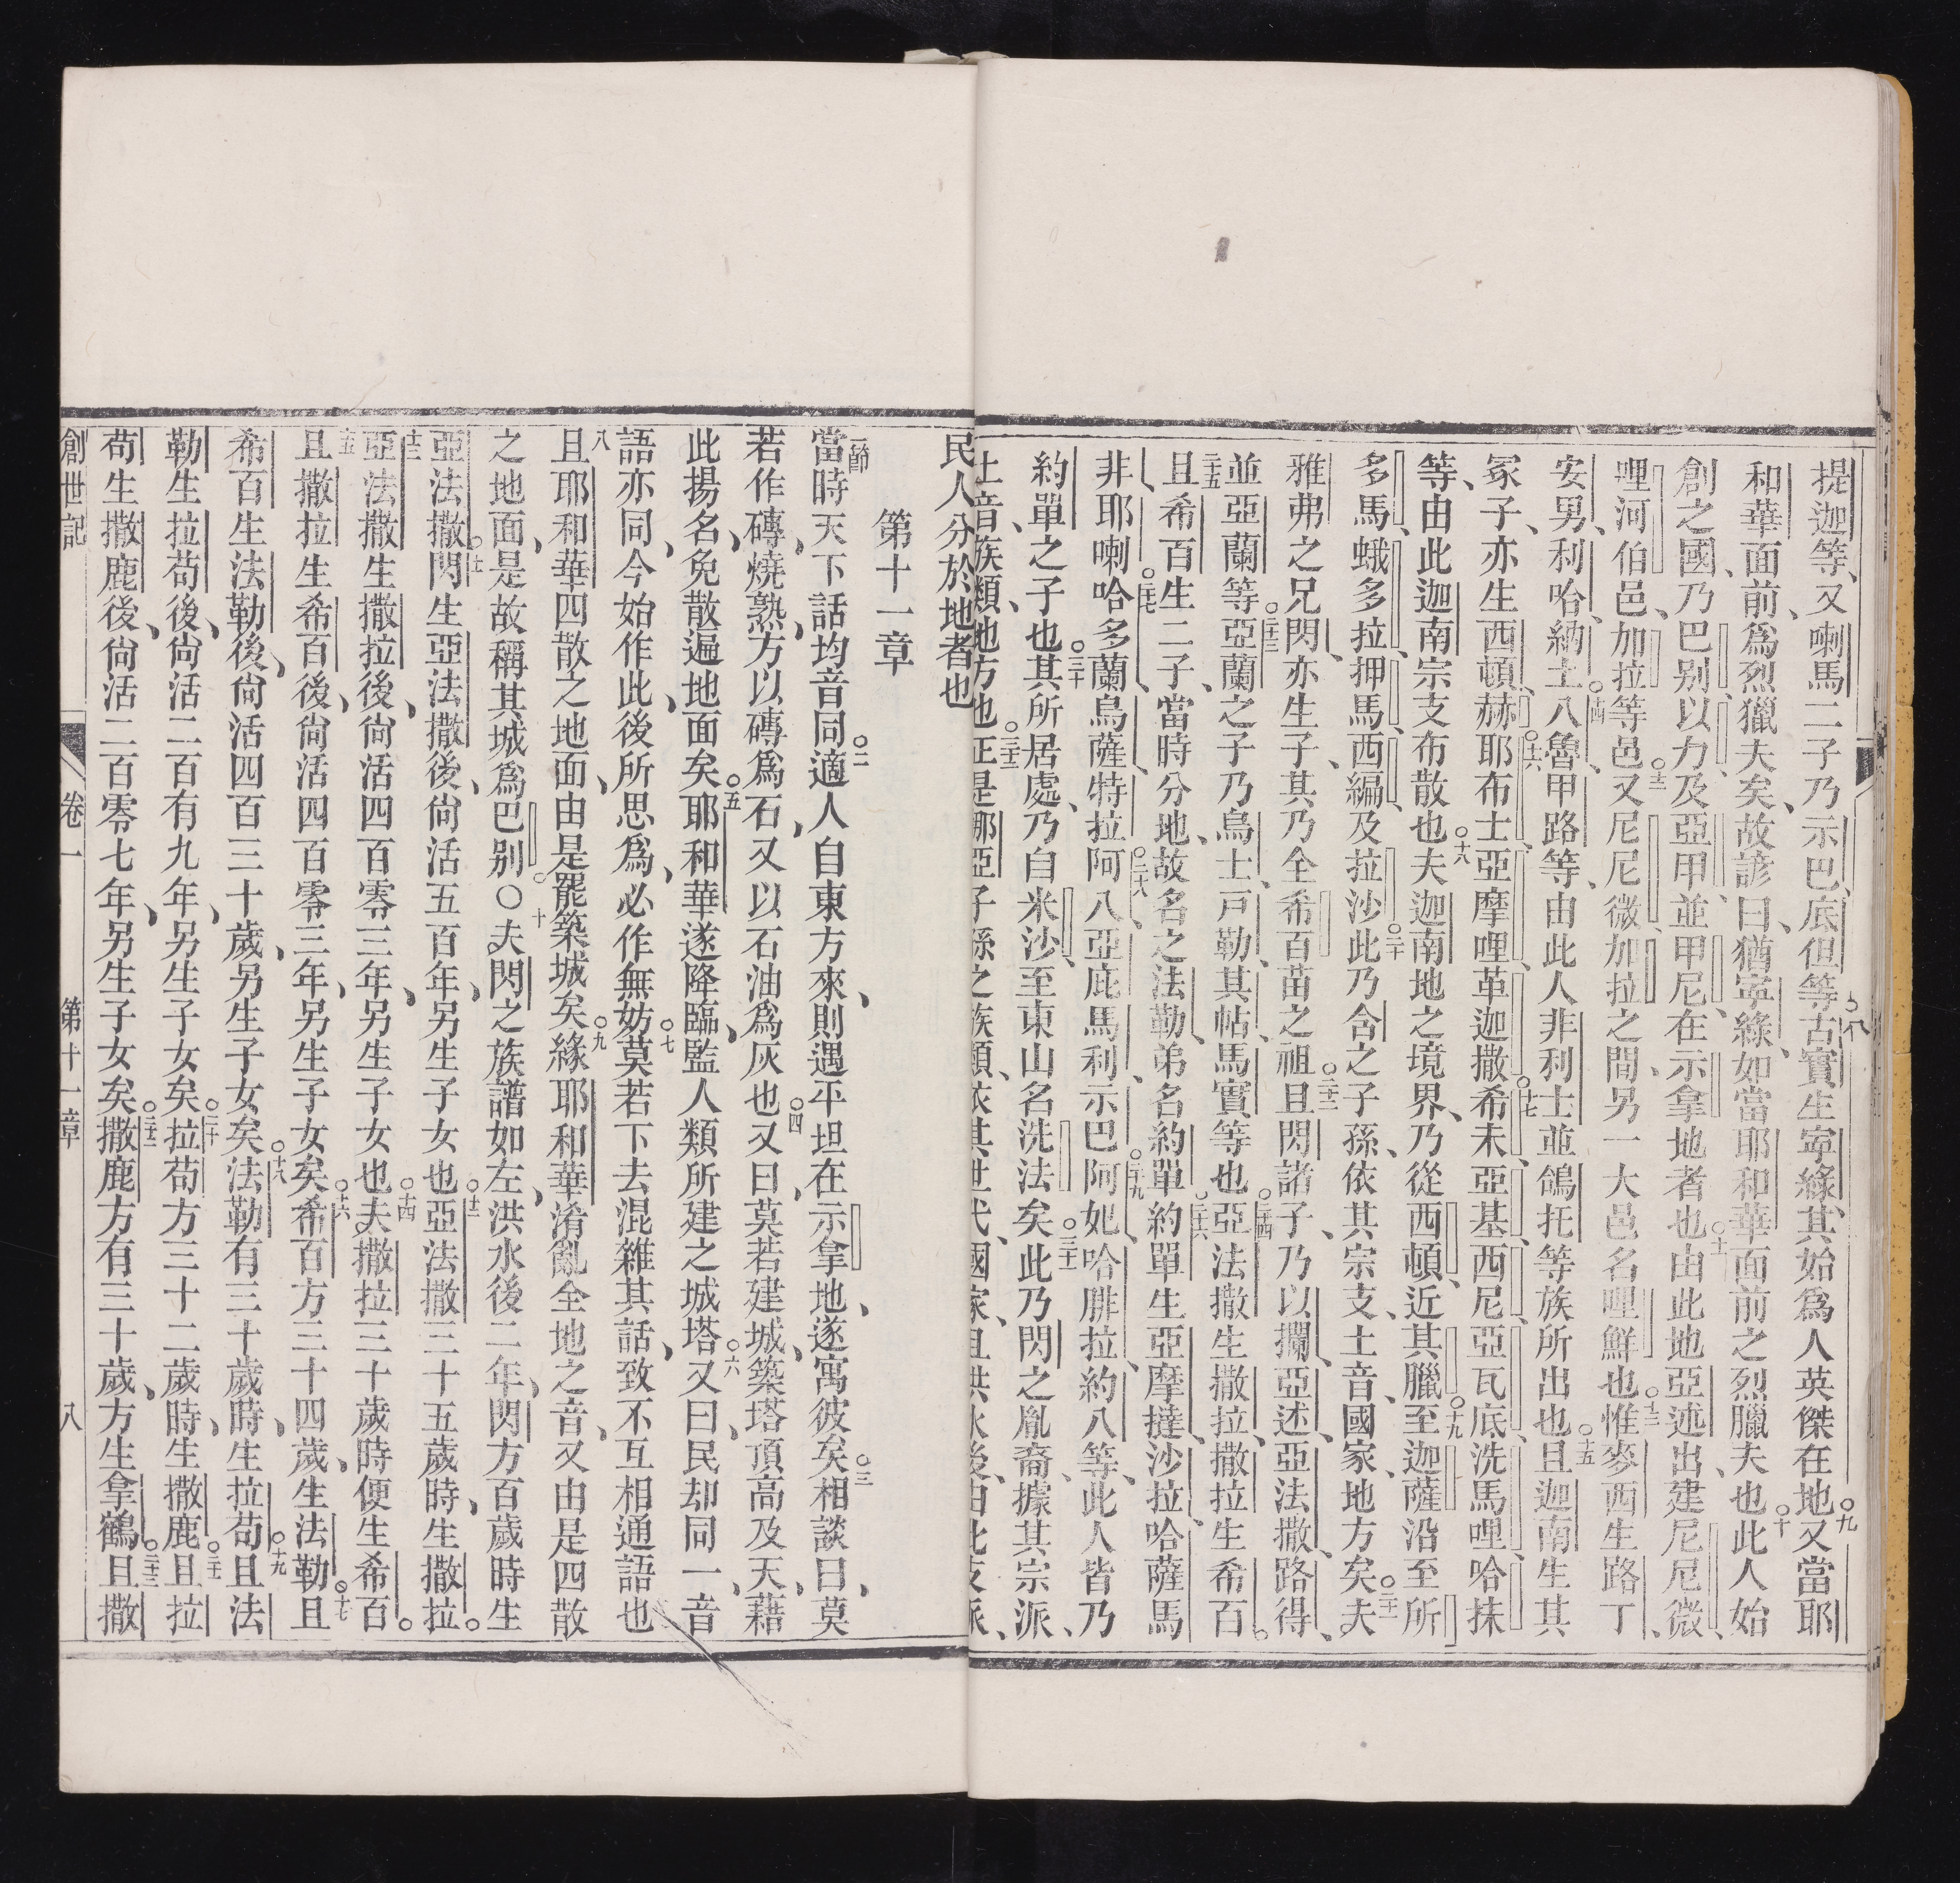 提迦等、又喇馬二子乃示巴、底但等○八古實生寧綠、其始爲人英傑在地○九又當耶
和華面前、爲烈獵夫矣、故諺曰、猶寧綠、如當耶和華面前之烈臘夫也○十此人始
創之國、乃巴別、以力、及亞甲、並甲尼、在示拿地者也○十一由此地亞述出、建尼尼微、
哩河伯邑、加拉等邑○十二又尼尼微加拉之間、另一大邑名哩鮮也○十三惟麥西生路丁、
安男、利哈、納土○十四八魯甲路等、由此人非利士並鴿托等族所出也○十五且迦南生其
冢子、亦生西頓、赫○十六耶布士、亞摩哩、革迦撒○十七希未、亞基、西尼、亞瓦底、洗馬哩、哈抹
等、由此迦南宗支布散也○十八夫迦南地之境界、乃從西頓、近其臘○十九至迦薩、沿至所
多馬、蛾多拉、押馬、西編、及拉沙○二十此乃含之子孫、依其宗支、土音、國家、地方矣○二十一夫
雅弗之兄閃、亦生子、其乃全希百苗之祖○二十二且閃諸子、乃以攔、亞述、亞法撒、路得、
並亞蘭等○二十三亞蘭之子乃烏士、戸勒、其帖、馬實等也○二十四亞法撒生撒拉、撒拉生希百○
二十五且希百生二子、當時分地、故名之法勒、弟名約單○二十六約單生亞摩撻、沙拉、哈薩馬
非、耶喇○二十七哈多蘭、烏薩、特拉○二十八阿八、亞庇馬利、示巴○二十九阿妣、哈腓拉、約八等、此人皆乃
約單之子也○三十其所居處、乃自米沙、至東山名洗法矣○三十一此乃閃之胤裔、據其宗派、
土音、族類、地方也○三十二正是挪亞子孫之族類、依其世代、國家、且洪水後、由此支派、
民人分於地者也
第十一章
一節當時天下話均音同○二適人自東方來、則遇平坦在示拿地、遂寓彼矣○三相談曰、莫
若作磚、燒熟、方以磚爲石、又以石油爲灰也○四又曰、莫若建城、築塔頂高及天、藉
此揚名、免散遍地面矣○五耶和華遂降臨、監人類所建之城塔○六又曰、民却同一音
語亦同、今始作此、後所思爲、必作無妨○七莫若下去混雜其話、致不互相通語也
八且耶和華四散之地面、由是罷築城矣○九緣耶和華淆亂全地之音、又由是四散
之地面、是故稱其城爲巴別○十〇夫閃之族譜如左、洪水後二年、閃方百歲時生
亞法撒○十一閃生亞法撒後、尙活五百年、另生子女也○十二亞法撒三十五歲時、生撒拉○
十三亞法撒生撒拉後、尙活四百零三年、另生子女也○十四夫撒拉三十歲時便生希百○
十五且撒拉生希百後、尙活四百零三年、另生子女矣○十六希百方三十四歲、生法勒○十七且
希百生法勒後、尙活四百三十歲、另生子女矣○十八法勒有三十歲時、生拉苟○十九且法
勒生拉苟後、尙活二百有九年、另生子女矣○二十拉苟方三十二歲時、生撒鹿○二十一且拉
苟生撒鹿後、尙活二百零七年、另生子女矣○二十二撒鹿方有三十歲、方生拿鶴○二十三且撒
創世記 卷一 第十一章 八